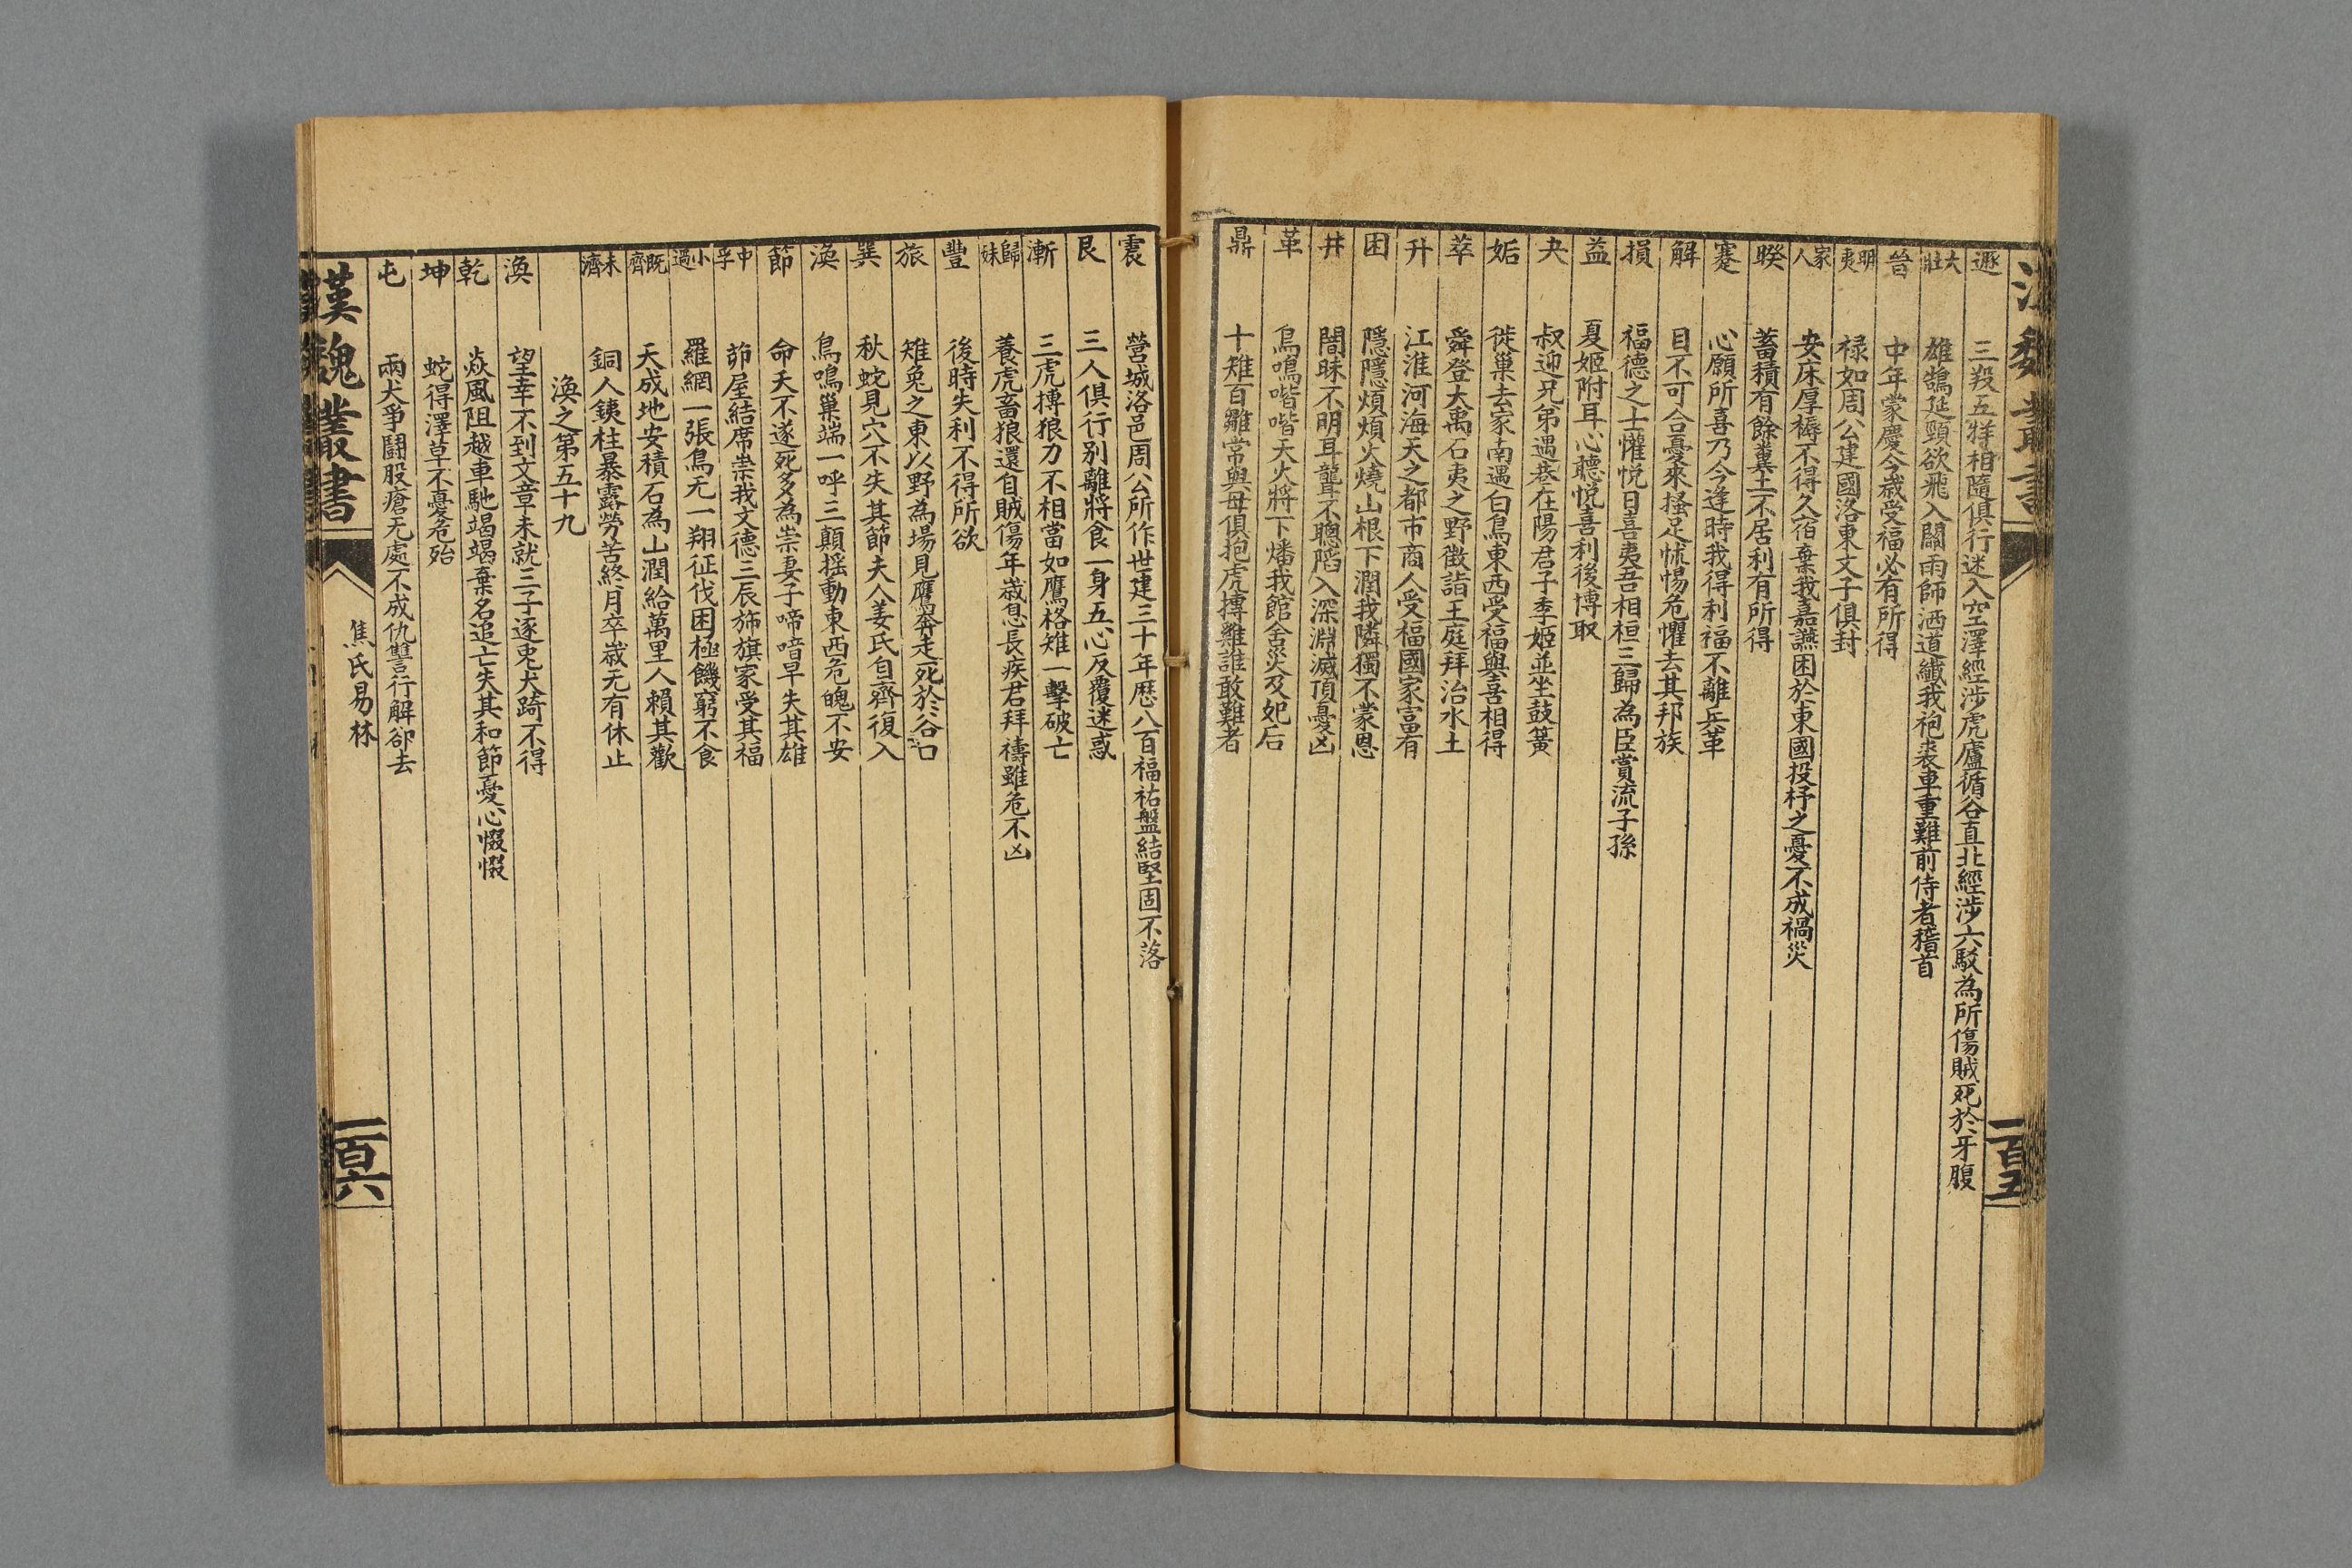 漢魏叢書
一百五
遯 三羖五牂相隨俱行迷入空澤經涉虎廬循谷直北經涉六駁為所傷賊死於牙腹
大壯 雄鵠延頸欲飛入關雨師洒道纖我袍裘車重難前侍者稽首
晉 中年蒙慶今歲受福必有所得
明夷 禄如周公建國洛東文子俱封
家人 安床厚褥不得久宿棄我嘉讌困於東國投杼之憂不成禍災
睽 蓄積有餘糞土不居利有所得
蹇 心願所喜乃今逢時我得利福不離兵革
解 目不可合憂來搔足怵惕危懼去其邦族
損 福德之士懽悅日喜夷吾相桓三歸為臣賞流子孫
益 夏姬附耳心聽悅喜利後博取
夬 叔迎兄弟遇巷在陽君子季姬並坐鼓簧
姤 徙巢去家南遇白烏東西受福與喜相得
萃 舜登大禹石夷之野徵詣王庭拜治水土
升 江淮河海天之都市商人受福國家富有
困 隱隱煩煩火燒山根下潤我隣獨不蒙恩
井 闇昧不明耳聾不聰陷入深淵滅頂憂凶
革 烏鳴喈喈天火將下燔我館舍災及妃后
鼎 十雉百雛常與母俱抱虎搏雞誰敢難者
震 營城洛邑周公所作世建三十年歷八百福祐盤結堅固不落
艮 三人俱行别離將食一身五心反覆迷惑
漸 三虎搏狼力不相當如鷹格雉一擊破亡
歸妹 養虎畜狼還自賊傷年歲息長疾君拜禱雖危不凶
豐 後時失利不得所欲
旅 雉兔之東以野為場見鷹奔走死於谷口
巽 秋蛇見穴不失其節夫人姜氏自齊復入
渙 鳥鳴巢端一呼三顛摇動東西危魄不安
節 命夭不遂死多為祟妻子啼喑早失其雄
中孚 茆屋結席崇我文德三辰斾旗家受其福
小過 羅網一張鳥无一翔征伐困極饑窮不食
既濟 天成地安積石為山潤給萬里人賴其歡
未濟 銅人鐵柱暴露勞苦終月卒歲无有休止
渙之第五十九
渙 望幸不到文章未就三子逐兎犬踦不得
乾 焱風阻越車馳竭竭棄名追亡失其和節憂心惙惙
坤 蛇得澤草不憂危殆
屯 兩犬爭鬪股瘡无處不成仇讐行解卻去
漢魏叢書
焦氏易林
一百六